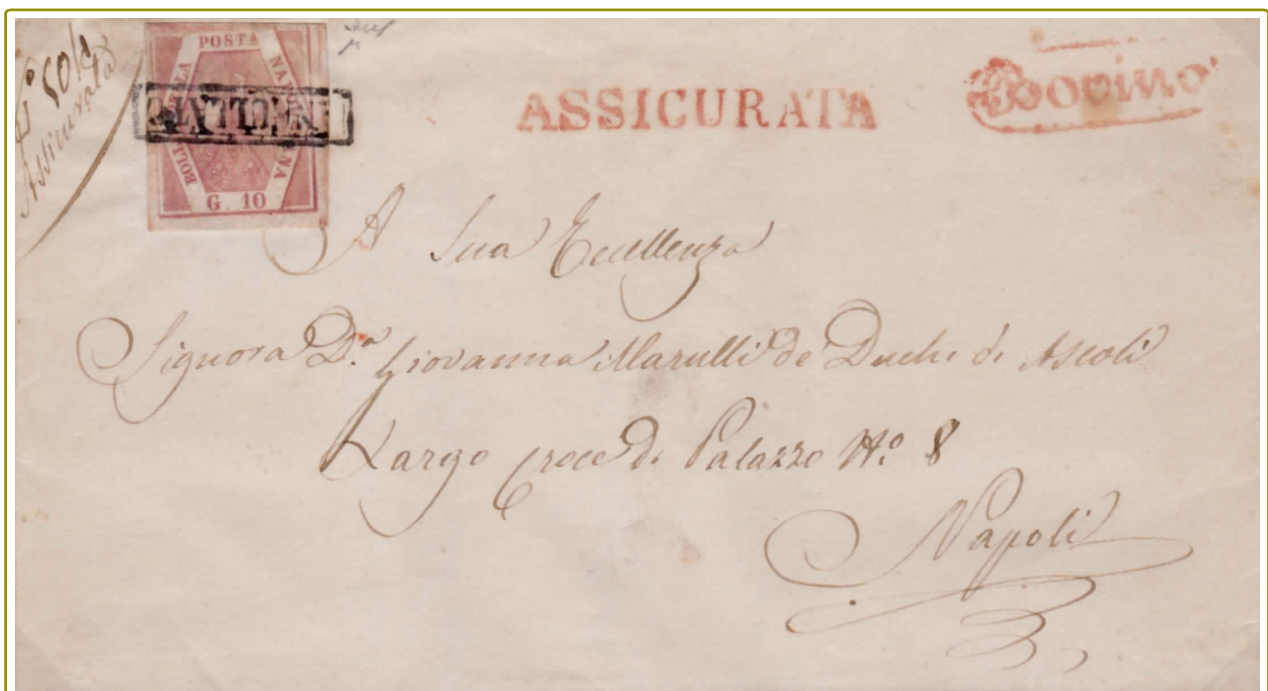 N° 501
Assicurata
BOLLO DELLA POSTA NAPOLETANA
G. 10
ANNULLATO
ASSICURATA
Bovino
A Sua Eccellenza
Signora D.ª Giovanna Marulli de Duchi di Ascoli
Largo Croce di Palazzo N.º 8
Napoli